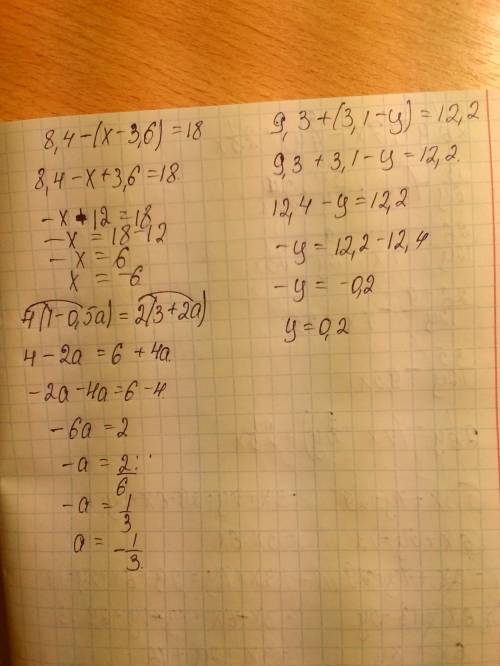 8,4-(x-3,6)=18
8,4-x+3,6=18
-x+12=18
-x=18-12
-x=6
x=-6
4(1-0,5a)=2(3+2a)
4-2a=6+4a
-2a-4a=6-4
-6a=2
-a=2/6
-a=1/3
a=-1/3
9,3+(3,1-y)=12,2
9,3+3,1-y=12,2
12,4-y=12,2
-y=12,2-12,4
-y=-0,2
y=0,2